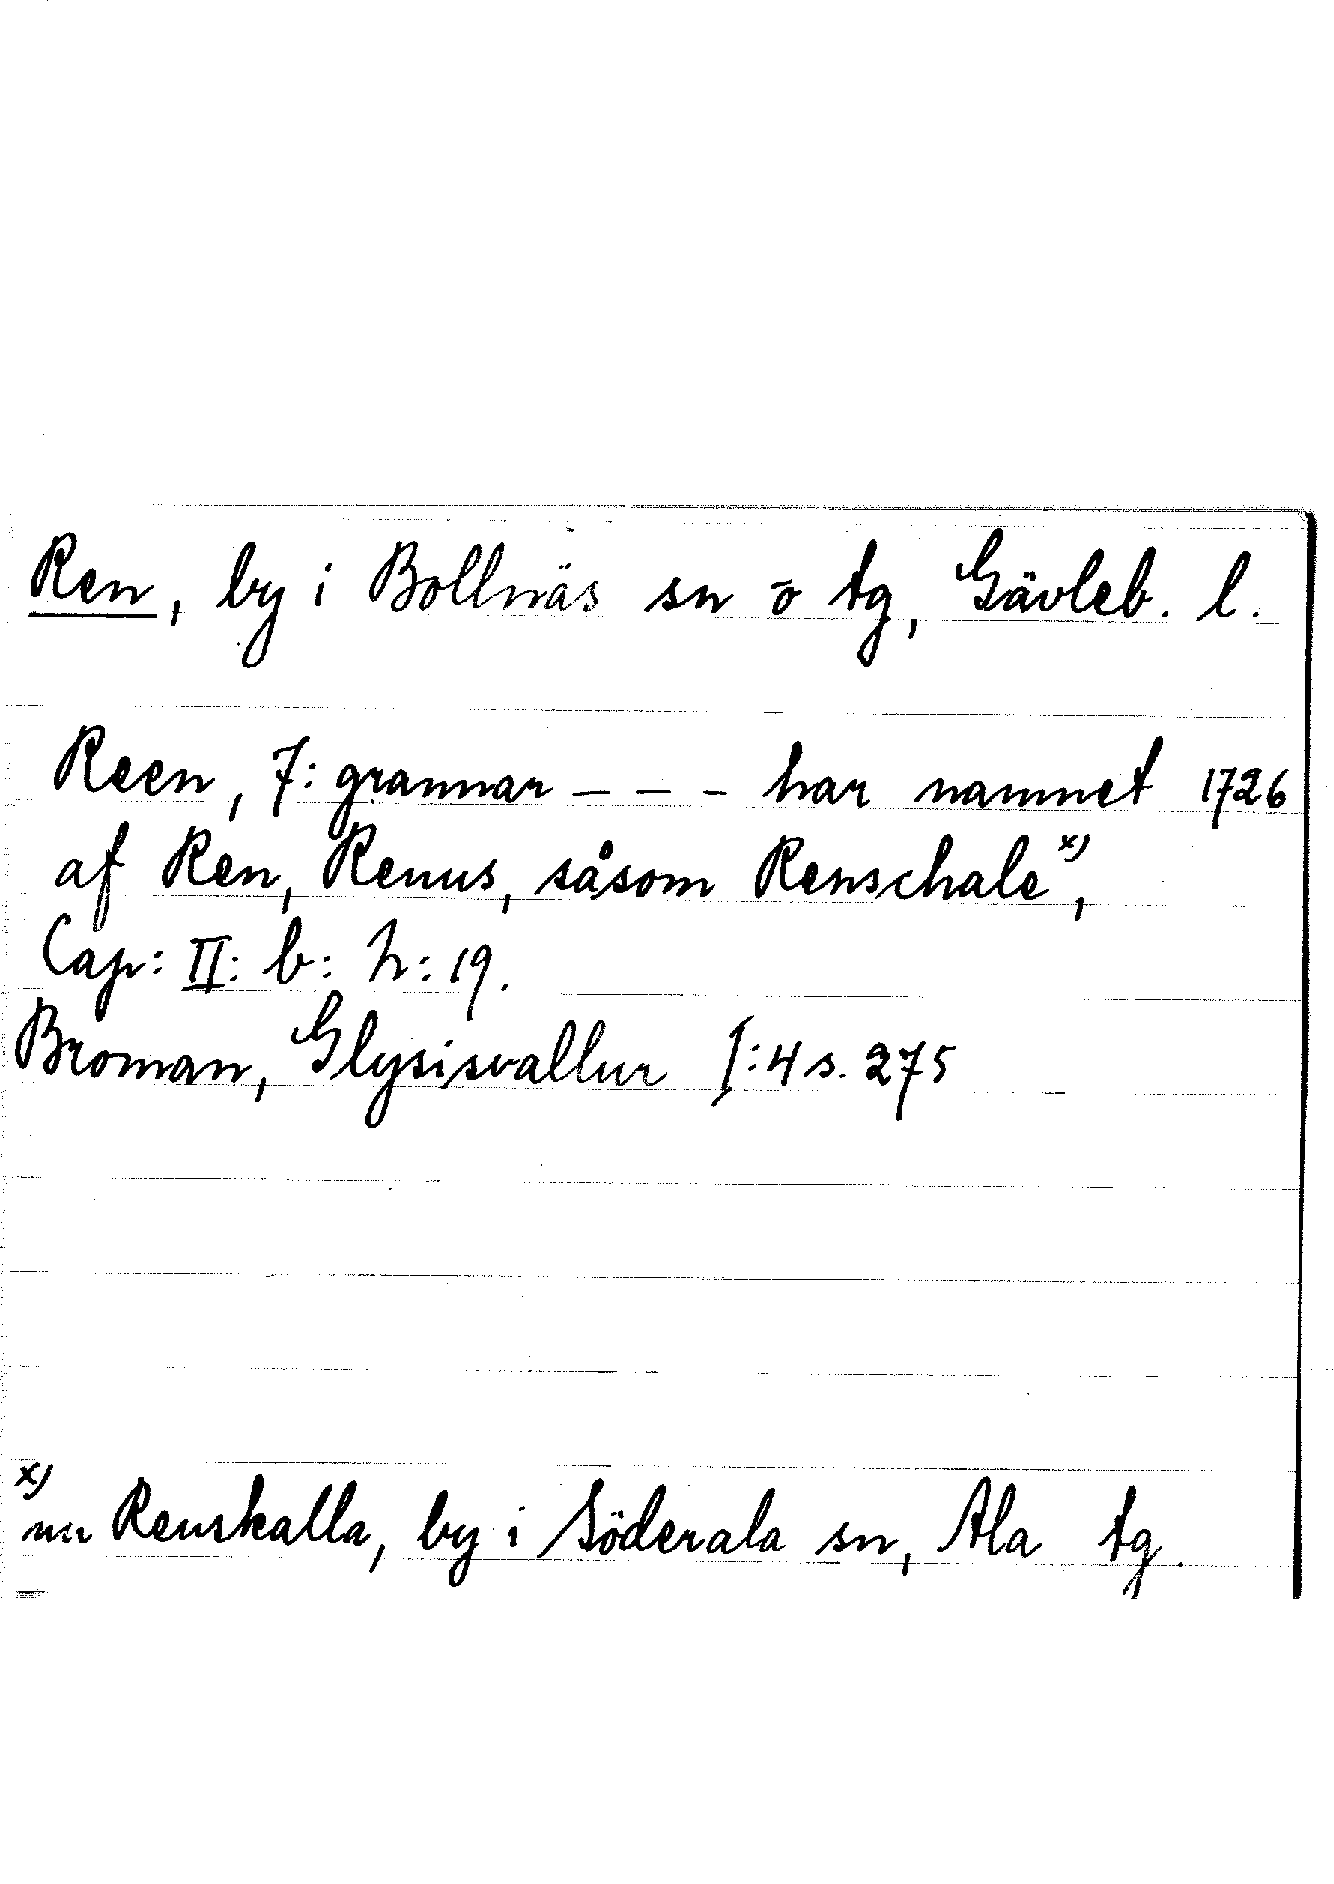 Ren, by i Bollnäs sn o tg, Gävleb. l.
Reen, 7: grannar - - - har namnet 1726
af Ren, Renus, såsom Renschale x),
Cap: II: b: h: 19.
Broman, Glysisvallur I:4 s. 275
x) nu Renskalla, by i Söderala sn, Ala tg.